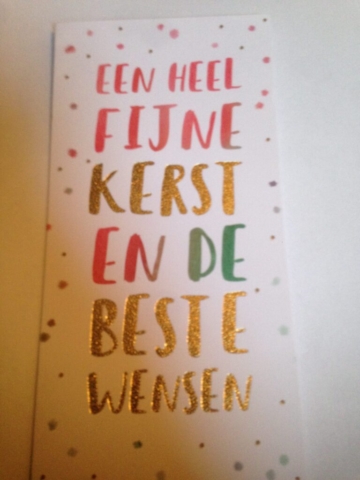 EEN HEEL
FIJNE
KERST
EN DE
BESTE
WENSEN